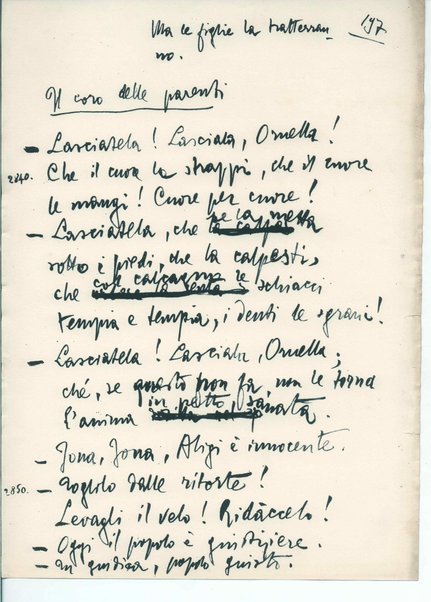 Ma le figlie la tratterran 197
no.
Il coro delle parenti
– Lasciatela! Lasciala, Ornella!
2840. Che il cuore la strappi, che il cuore
le mangi! Cuore per cuore!
– Lasciatela, che se la metta
sotto i piedi, che la calpesti,
che col calcagno le schiacci
tempia e tempia, i denti le sgrani!
– Lasciatela! Lasciala, Ornella;
ché, se questo non fa, non le torna
l'anima in petto, sanata.
– Jona, Jona, Aligi è innocente.
2850. – Toglilo dalle ritorte!
Levagli il velo! Ridàccelo!
– Oggi il popolo è giustiziere.
– popolo giusto.